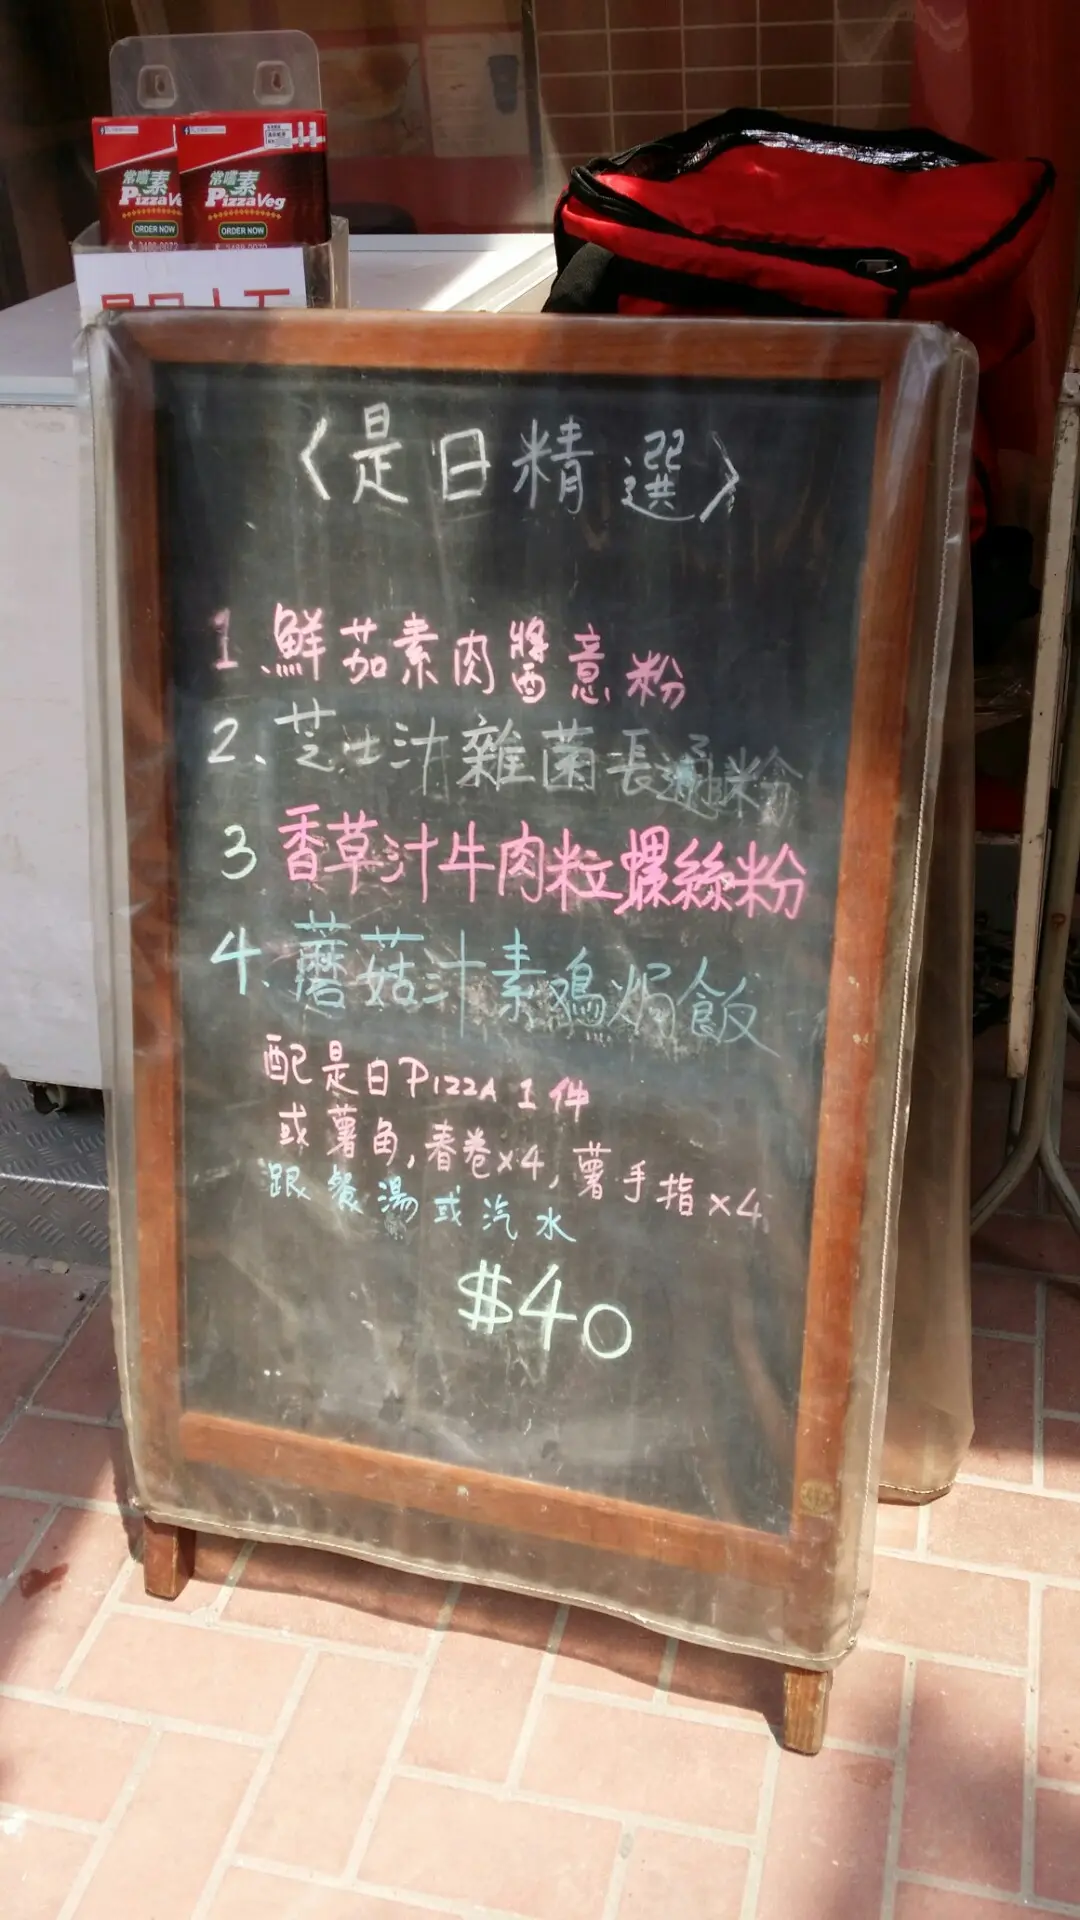 常嚐素
PizzaVeg
ORDER NOW
常嚐素
PizzaVeg
ORDER NOW
〈是日精選〉
1、鮮茄素肉醬意粉
2、芝士汁雜菌長通粉
3 香草汁牛肉粒螺絲粉
4、蘑菇汁素鷄焗飯
配是日PIZZA 1件
或薯角,春卷x4,薯手指x4
跟餐湯或汽水
$40